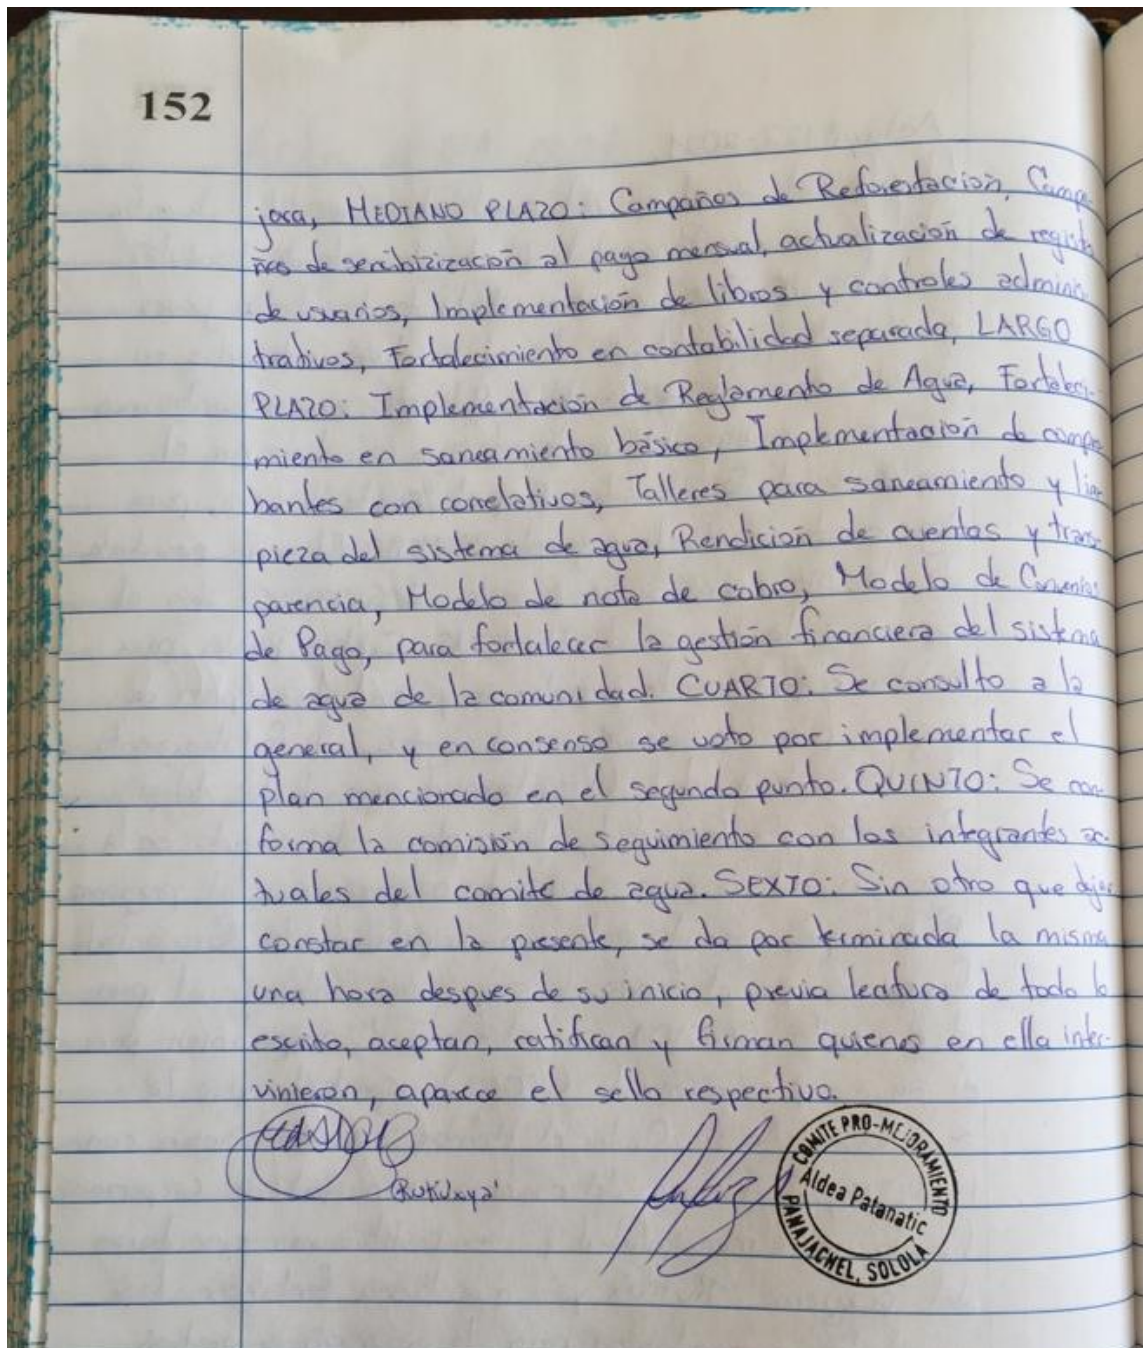 152
jora, MEDIANO PLAZO: Campañas de Reforestación, Campa
ñas de sencibizización al pago mensual, actualización de regist
de usuarios, Implementación de libros y controles adminis
trativos, Fortalecimiento en contabilidad separada, LARGO
PLAZO: Implementación de Reglamento de Agua, Fortaleci-
miento en saneamiento básico, Implementación de compro
bantes con correlativos, Talleres para saneamiento y lim
pieza del sistema de agua, Rendición de cuentas y trans
parencia, Modelo de nota de cobro, Modelo de Convenios
de Pago, para fortalecer la gestión financiera del sistema
de agua de la comunidad. CUARTO: Se consulto a la
general, y en consenso se voto por implementar el
plan mencionado en el segundo punto. QUINTO: Se con
forma la comisión de seguimiento con los integrantes ac-
tuales del comite de agua. SEXTO: Sin otro que dejar
constar en la presente, se da por terminada la misma
una hora despues de su inicio, previa lectura de todo lo
escrito, aceptan, ratifican y firman quienes en ella inter-
vinieron, aparece el sello respectivo.
Rukuxya'
COMITE PRO-MEJORAMIENTO
Aldea Patanatic
PANAJACHEL, SOLOLA